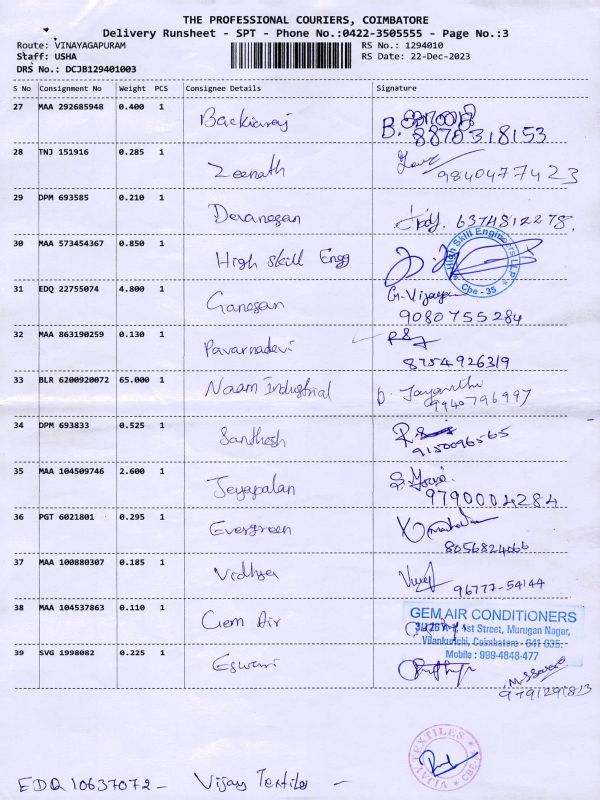 THE PROFESSIONAL COURIERS, COIMBATORE
Delivery Runsheet - SPT - Phone No.:0422-3505555 - Page No.:3
Route: VINAYAGAPURAM
Staff: USHA
DRS No.: DCJB129401003
RS No.: 1294010
RS Date: 22-Dec-2023
S No Consignment No Weight PCS Consignee Details Signature
27 MAA 292685948 0.400 1 Backiaraj B.
8870318153
28 TNJ 151916 0.285 1 Zeenath
9840477423
29 DPM 693585 0.210 1 Devanesan 6374812278.
30 MAA 573454367 0.850 1 High skill Engg
High Skill Engineers LLP
Cbe - 35
31 EDQ 22755074 4.800 1 Ganesan G. Vijaya
9080755284
32 MAA 863190259 0.130 1 Pavarnadevi
8754926319
33 BLR 6200920072 65.000 1 Naam Industrial D. Jayanthi
9940796997
34 DPM 693833 0.525 1 Santhosh
9150096565
35 MAA 104509746 2.600 1 Jeyapalan
9790004284
36 PGT 6021801 0.295 1 Evergreen
8056824066
37 MAA 100880307 0.185 1 Vidhya
96777-54144
38 MAA 104537863 0.110 1 Gem Air
GEM AIR CONDITIONERS
1st Street, Murugan Nagar,
Vilankurichi, Coimbatore - 641 035.
Mobile : 999-4848-477
39 SVG 1998082 0.225 1 Eswari
9791291813
VIJAY TEXTILES
CBE
EDQ 10637072 - Vijay Textiles -